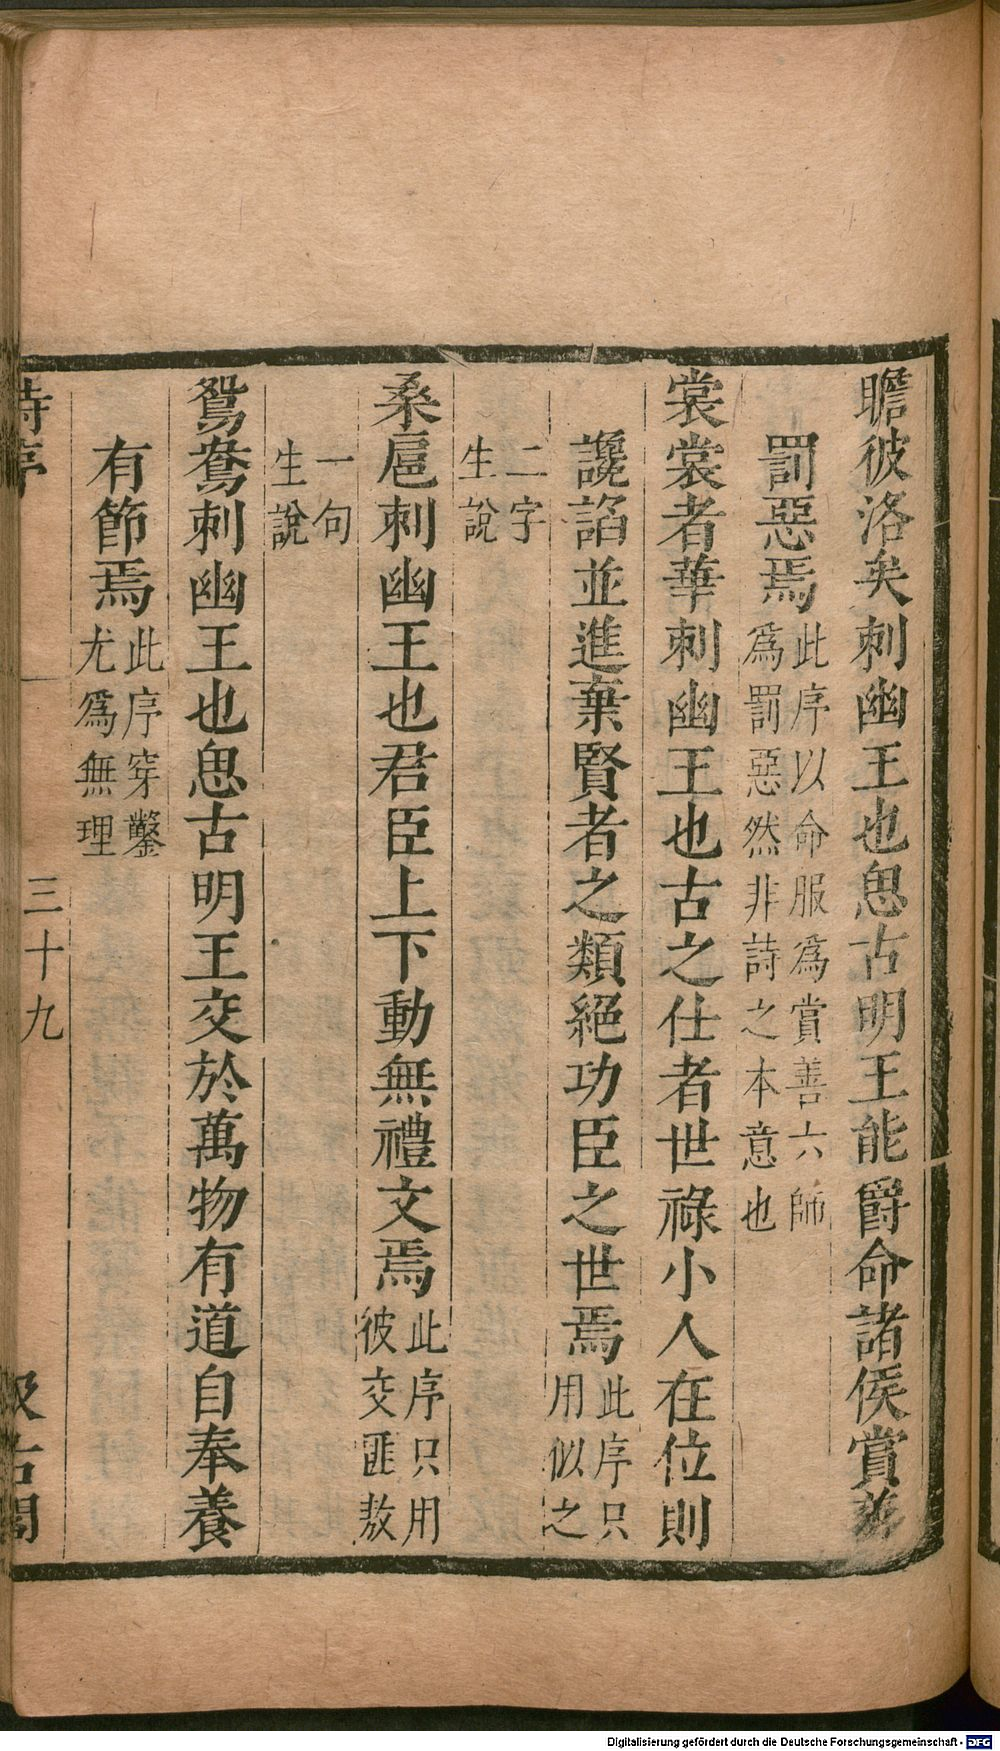 瞻彼洛矣刺幽王也思古明王能爵命諸侯賞善
罰惡焉
此序以命服爲賞善六師
爲罰惡然非詩之本意也
裳裳者華刺幽王也古之仕者世祿小人在位則
讒諂並進棄賢者之類絕功臣之世焉
此序只
用似之
二字
生說
桑扈刺幽王也君臣上下動無禮文焉
此序只用
彼交匪敖
一句
生說
鴛鴦刺幽王也思古明王交於萬物有道自奉養
有節焉
此序穿鑿
尤爲無理
詩序
三十九
汲古閣
Digitalisierung gefördert durch die Deutsche Forschungsgemeinschaft - DFG